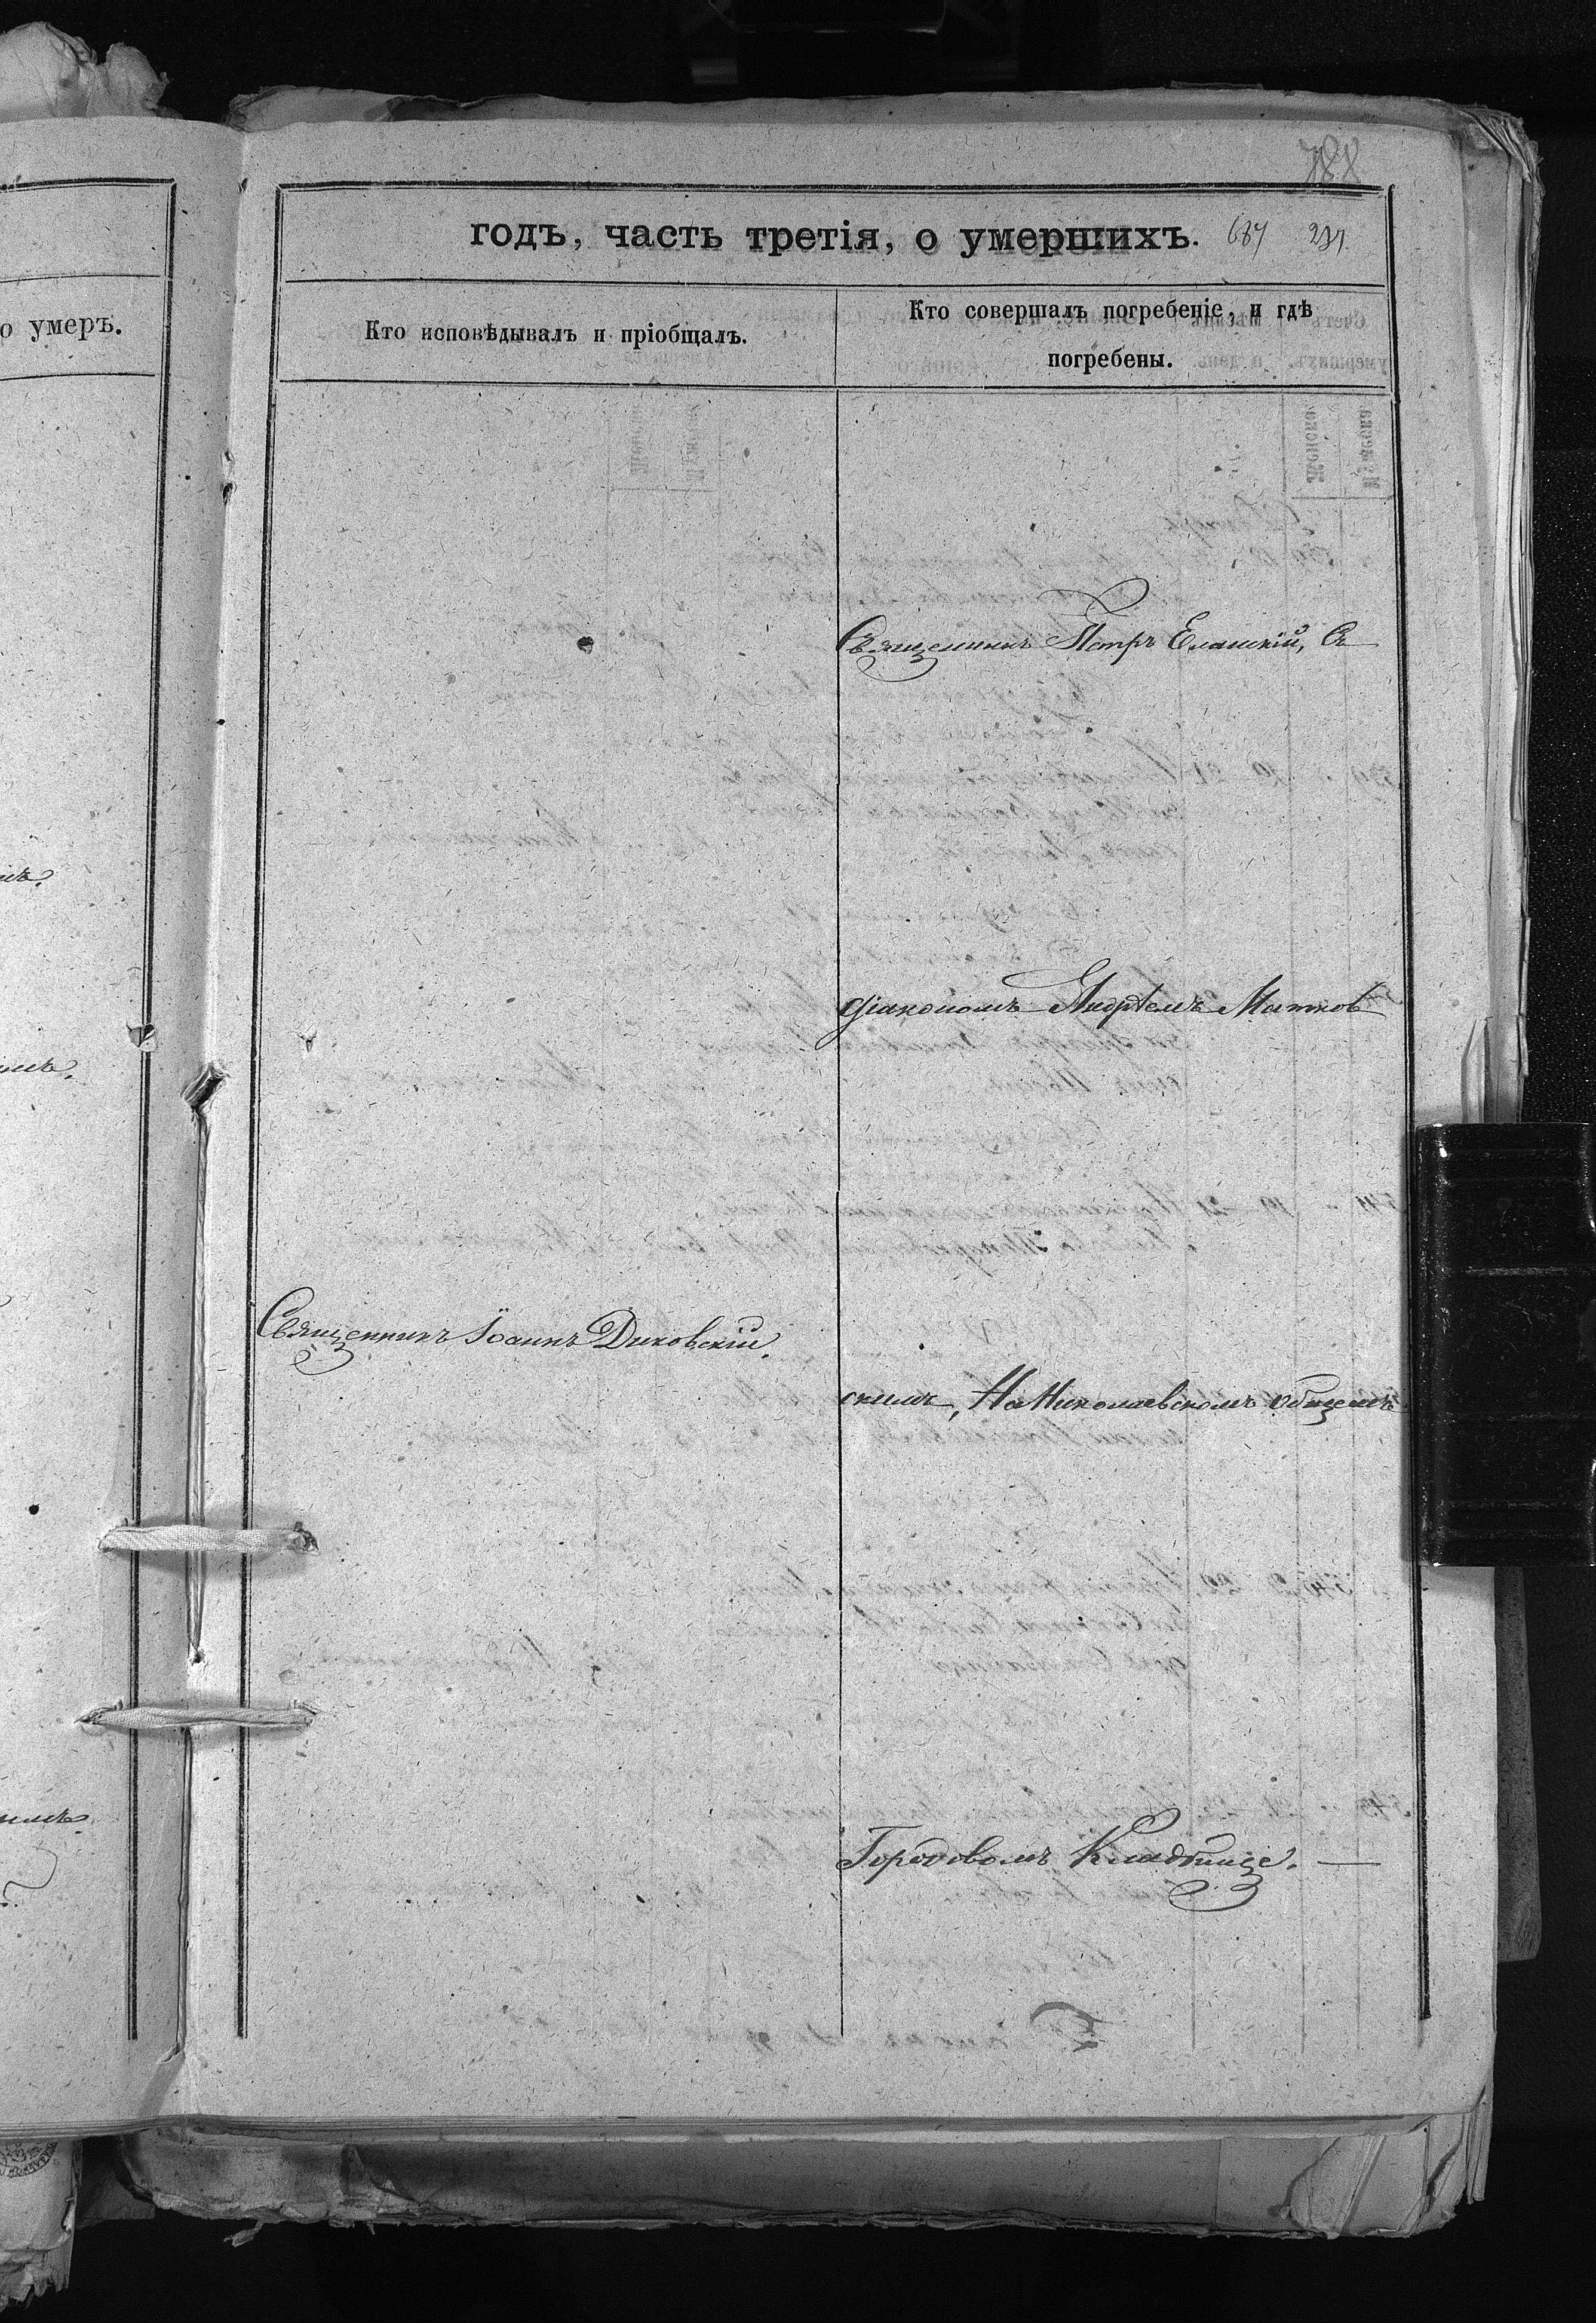 788
годъ, часть третія, о умершихъ. 687
о умеръ.
Кто исповѣдывалъ и пріобщалъ.
Кто совершалъ погребеніе, и гдѣ
погребены.
Священникъ Петръ Еланскій, Съ
діакономъ Андрѣемъ Матков
Священникъ Іоаннъ Диковскій.
скимъ, На Николаевскомъ общемъ
Городовомъ Кладбище.